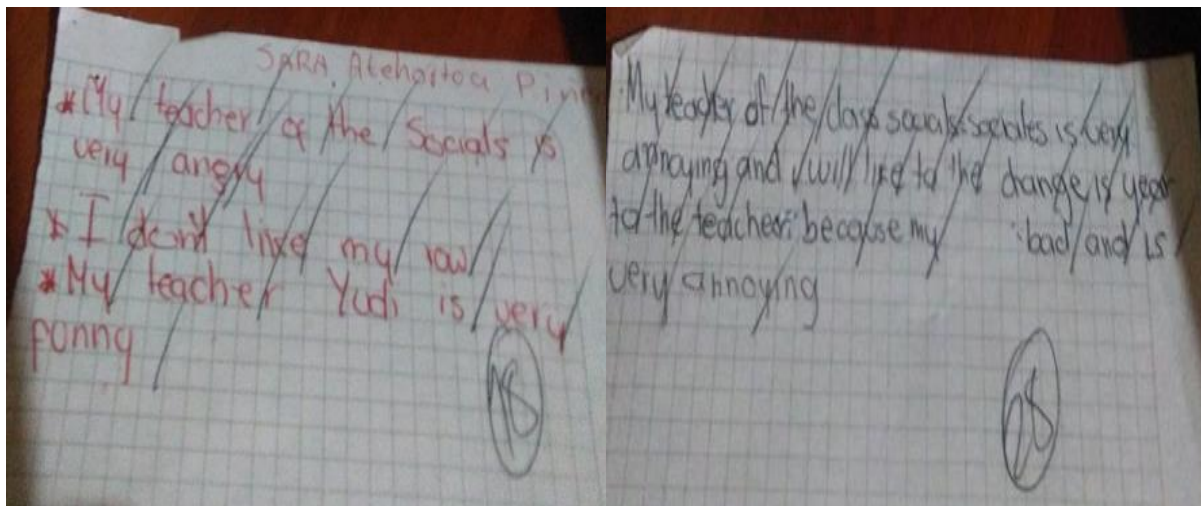 SARA Atehortua Pin
*My teacher of the Socials is
very angry
*I don't like my row
*My teacher Yudi is very
fonny
18
My teacher of the class socials sociales is very
annoying and I will like to the change is year
to the teacher because my bad and is
very annoying